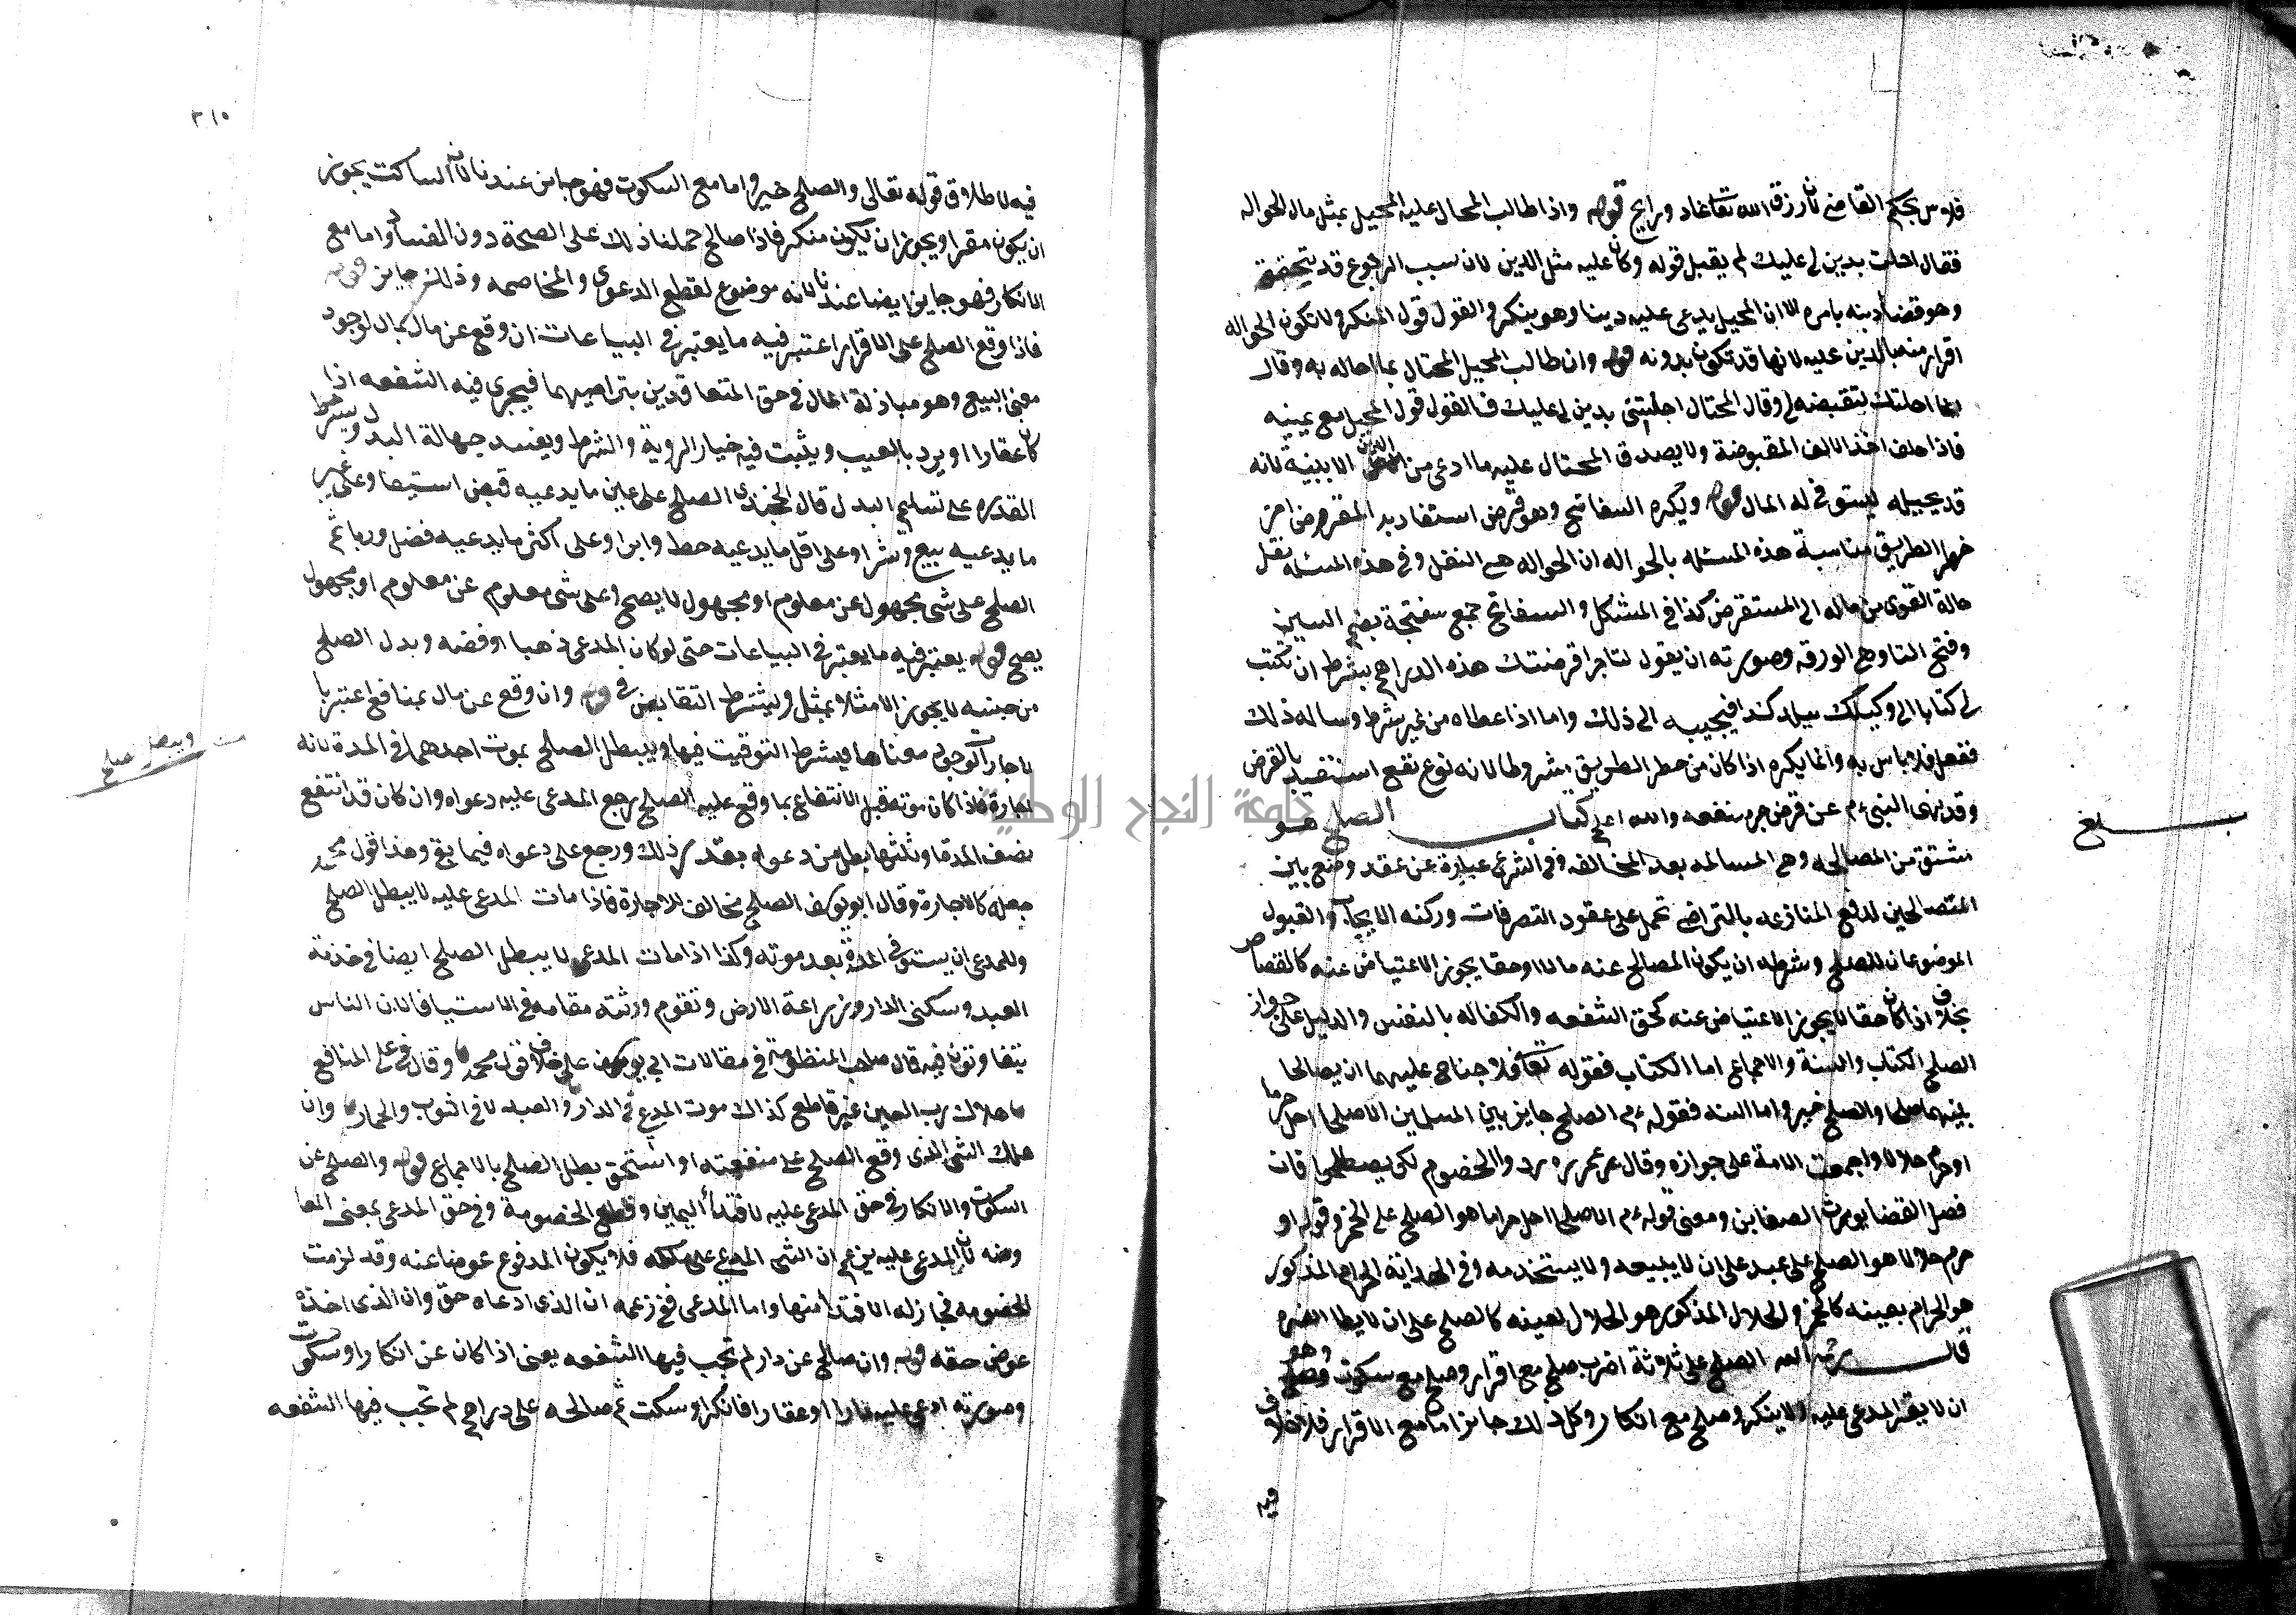 فلاس بحكم القاضي لان رزق الله تعا غاد ورايح قوله واذا طالب المحال عليه المحيل بمثل مال الحواله
فقال احلت بدين لي عليك لم يقبل قوله وكان عليه مثل الدين لان سبب الرجوع قد تحقق
وهو قضا دينه بامره الا ان المحيل يدعى عليه دينا وهو ينكر والقول قول المنكر ولا تكون الحواله
اقرار منه بالدين عليه لانها قد تكون بدونه قوله وان طالب المحيل المحتال بما احاله به وقال
انما احلتك لتقبضه لي وقال المحتال احلتني بدين لي عليك فالقول قول المحيل مع يمينه
فاذا حلف اخذ الالف المقبوضة ولا يصدق المحتال عليه ما ادعى من الدين الا ببينة لانه
قد يحيله ليستوفى له المال قوله ويكره السفاتج وهو قرض استفاد به المقرض امن
خطر الطريق مناسبة هذه المسئله بالحواله ان الحواله هي النقل وفى هذه المسئله نقل
حالة القوى من ماله الى المستقرض كذا في المشكل والسفاتج جمع سفتجة بضم السين
وفتح التا وهي الورقه وصورته ان يقول لتاجر اقرضتك هذه الدراهم بشرط ان تكتب
لى كتابا الى وكيلك ببلد كذا فيجيبه الى ذلك واما اذا اعطاه من غير شرط وساله ذلك
ففعل فلا باس به وانما يكره اذا كان من خطر الطريق مشروطا لانه نوع نفع استفيد بالقرض
وقد نهى النبي ءم عن قرض جر منفعه والله اعلم كتاب الصلح هو
مشتق من المصالحه وهي المسالمه بعد المخالفه وفى الشرع عبارة عن عقد وضع بين
المتصالحين لدفع المنازعه بالتراضي تحمل على عقود التصرفات وركنه الايجاب والقبول
الموضوعان للصلح وشرطه ان يكون المصالح عنه مالا او حقا يجوز الاعتياض عنه كالقصاص
بخلاف اذا كان حقا لا يجوز الاعتياض عنه كحق الشفعه والكفاله بالنفس والدليل على جواز
الصلح الكتاب والسنة والاجماع اما الكتاب فقوله تعا فلا جناح عليهما ان يصالحا
بينهما صلحا والصلح خير واما السنه فقوله ءم الصلح جايز بين المسلمين الا صلحا احل حراما
او حرم حلالا واجمعت الامة على جوازه وقال عمر ردوا الخصوم لكي يصطلحوا فان
فصل القضا يورث الضغاين ومعنى قوله ءم الا صلحا احل حراما هو الصلح على الخمر وقوله او
حرم حلالا هو الصلح على عبد على ان لا يبيعه ولا يستخدمه وفى الهداية الحرام المذكور
هو الحرام بعينه كالخمر والحلال المذكور هو الحلال لعينه كالصلح على ان لا يطا الضره
قال الصلح على ثلاثة اضرب صلح مع اقرار وصلح مع سكوت وهو
ان لا يقر المدعى عليه ولا ينكر وصلح مع انكار وكل ذلك جايز اما مع الاقرار فلا خلاف
فيه
بلغ
٣١٥
فيه لاطلاق قوله تعالى والصلح خير واما مع السكوت فهو جايز عندنا لان الساكت يجوز
ان يكون مقرا ويجوز ان يكون منكر فاذا صالح حملنا ذلك على الصحة دون الفساد واما مع
الانكار فهو جايز ايضا عندنا لانه موضوع لقطع الدعوى والمخاصمه وذلك جايز قوله
فاذا وقع الصلح على الاقرار اعتبر فيه ما يعتبر في البياعات ان وقع عن مال بمال لوجود
معنى البيع وهو مباذلة المال في حق المتعاقدين بتراضيهما فيجرى فيه الشفعه اذا
كان عقارا او يرد بالعيب ويثبت فيه خيار الروية والشرط ويفسد جهالة البدل ويشترط
القدره على تسليم البدل قال الخجندى الصلح على عين ما يدعيه قبض استيفا وعلى غير
ما يدعيه بيع وشرا وعلى اقل ما يدعيه حط وابرا وعلى اكثر ما يدعيه فضل وربا ثم
الصلح على شى مجهول عن معلوم او مجهول لا يصح وعلى شى معلوم عن معلوم او مجهول
يصح قوله يعتبر فيه ما يعتبر في البياعات حتى لو كان المدعى ذهبا او فضه وبدل الصلح
من جنسه لا يجوز الا مثلا بمثل ويشترط التقابض فى قوله وان وقع عن مال بمنافع اعتبر با
لاجارات لوجود معناها فيشرط التوقيت فيها ويبطل الصلح بموت احدهما في المدة لانه
اجارة فاذا كان موته قبل الانتفاع بما وقع عليه الصلح رجع المدعى عليه دعواه وان كان قد انتفع
نصف المدة او ثلثها بطل من دعواه بقدر ذلك ورجع على دعواه فيما بقى وهذا قول محمد
جعله كالاجارة وقال ابو يوسف الصلح مخالف للاجارة فاذا مات المدعى عليه لا يبطل الصلح
وللمدعى ان يستوفى المدة بعد موته وكذا اذا مات المدعى لا يبطل الصلح ايضا في خدمة
العبد وسكنى الدار وزراعة الارض وتقوم ورثته مقامه في الاستيفا لان الناس
يتفاوتون فيه قال صاحب المنظومة في مقالات ابي يوسف على خلاف قول محمد وقال وفى على المنافع
هلاك رب العين غير قاطع كذاك موت المدعى في الدار والعبد لا في الثوب والحمار وان
هلك الشى الذى وقع الصلح على منفعته او استحق بطل الصلح بالاجماع قوله والصلح عن
السكوت والانكار في حق المدعى عليه لافتدا اليمين وقطع الخصومة وفى حق المدعى بمعنى المعا
وضه لان المدعى عليه يزعم ان الشى المدعى على ملكه فلا يكون المدفوع عوضا عنه وقد لزمت
الخصومه فجاز له الافتدا منها واما المدعى ففى زعمه ان الذي ادعاه حق وان الذى اخذه
عوض حقه قوله وان صالح عن دار لم تجب فيها الشفعه يعنى اذا كان عن انكار او سكوت
وصورته ادعى عليه دارا او عقارا فانكر او سكت ثم صالحه على دراهم لم تجب فيها الشفعه
ويبطل صلح
جامعة النجاح الوطنية